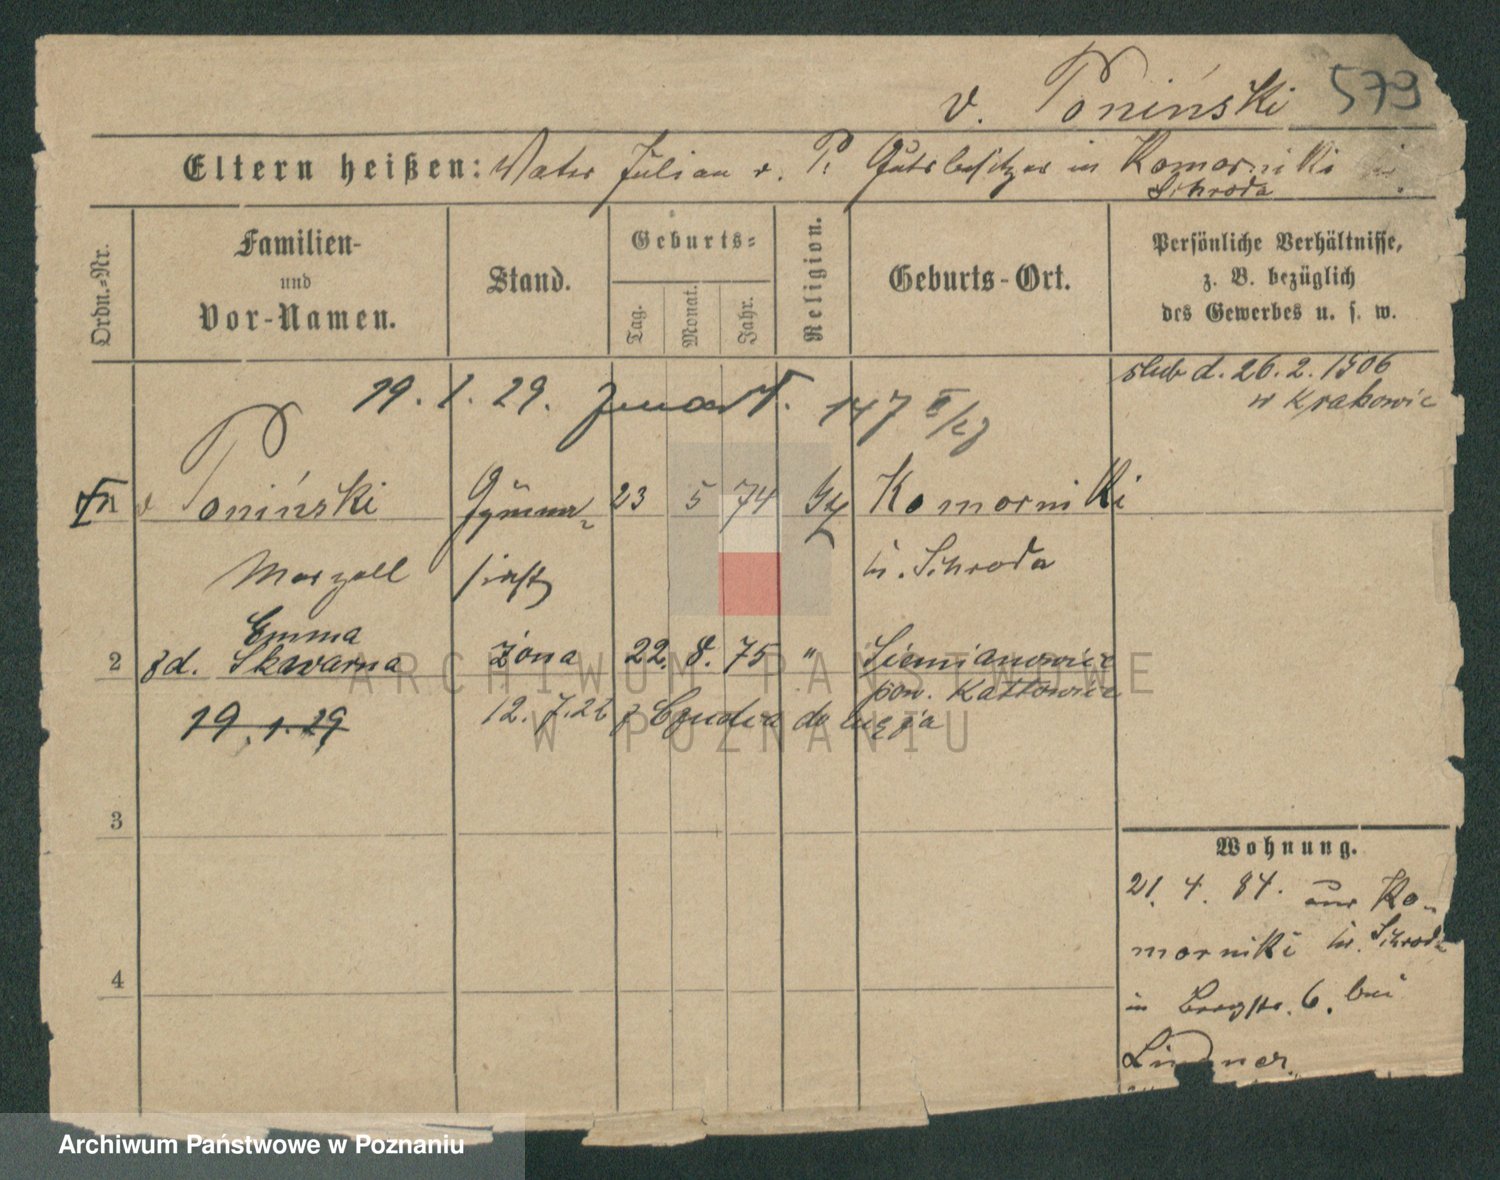 v. Poniński 579
Eltern heißen: Vater Julian v. P. Gutsbesitzer in Komorniki
Schroda
Ordn.-Nr.
Familien-
und
Vor-Namen.
Stand.
Geburts-
Tag.
Monat.
Jahr.
Religion.
Geburts-Ort.
Persönliche Verhältnisse,
z. B. bezüglich
des Gewerbes u. s. w.
ślub d. 26.2.1906
w Krakowie
19. 1. 29. zmarł. 147 II/29
v Poniński Gymna- 23 5 74 Komorniki
Marzell siast Schroda
Emma
2 zd. Skwarna żona 22. 8. 75 " Siemianowice
pow. Kattowice
19. 1. 29 12. 7. 22 z do
3
4
Wohnung.
21. 4. 84. aus Ko-
morniki Kr. Schroda
in Bergstr. 6. bei
Lindner.
ARCHIWUM PAŃSTWOWE
W POZNANIU
Archiwum Państwowe w Poznaniu